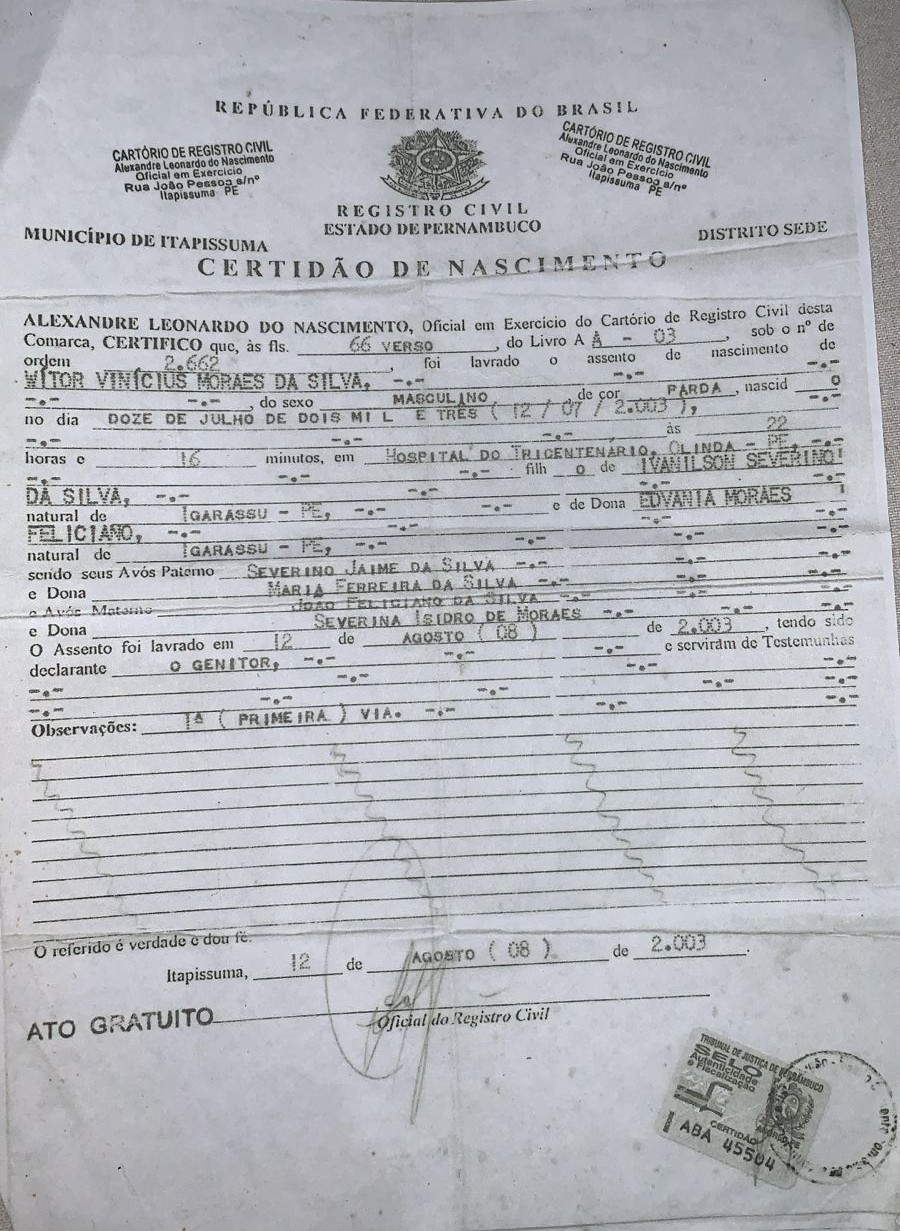 REPÚBLICA FEDERATIVA DO BRASIL
CARTÓRIO DE REGISTRO CIVIL
Alexandre Leonardo do Nascimento
Oficial em Exercício
Rua João Pessoa s/nº
Itapissuma PE
CARTÓRIO DE REGISTRO CIVIL
Alexandre Leonardo do Nascimento
Oficial em Exercício
Rua João Pessoa s/nº
Itapissuma PE
REGISTRO CIVIL
ESTADO DE PERNAMBUCO
MUNICÍPIO DE ITAPISSUMA
DISTRITO SEDE
CERTIDÃO DE NASCIMENTO
ALEXANDRE LEONARDO DO NASCIMENTO, Oficial em Exercício do Cartório de Registro Civil desta
Comarca, CERTIFICO que, às fls. 66 VERSO, do Livro A A - 03, sob o nº de
ordem 2.662, foi lavrado o assento de nascimento de
WITOR VINÍCIUS MORAES DA SILVA, -.- -.-
-.- -.-, do sexo MASCULINO, de cor PARDA, nascid O
no dia DOZE DE JULHO DE DOIS MIL E TRÊS ( 12 / 07 / 2.003 ), -.-
-.- -.- -.- às 22
horas e 16 minutos, em HOSPITAL DO TRICENTENÁRIO, OLINDA - PE, -.-
-.- -.- -.- filh o de IVANILSON SEVERINO
DA SILVA, -.- -.- -.-
natural de IGARASSU - PE, -.- -.- e de Dona EDVANIA MORAES
FELICIANO, -.- -.- -.-
natural de IGARASSU - PE, -.- -.- -.- -.-
sendo seus Avós Paterno SEVERINO JAIME DA SILVA -.- -.- -.-
e Dona MARIA FERREIRA DA SILVA -.- -.- -.-
e Avós Materno JOÃO FELICIANO DA SILVA -.- -.- -.-
e Dona SEVERINA ISIDRO DE MORAES -.- -.- -.-
O Assento foi lavrado em 12 de AGOSTO ( 08 ) de 2.003, tendo sido
declarante O GENITOR, -.- -.- -.- e serviram de Testemunhas
-.- -.- -.- -.-
-.- -.- -.- -.- -.-
Observações: 1ª ( PRIMEIRA ) VIA. -.- -.- -.-
O referido é verdade e dou fé.
Itapissuma, 12 de AGOSTO ( 08 ) de 2.003.
ATO GRATUITO
Oficial do Registro Civil
TRIBUNAL DE JUSTIÇA DE PERNAMBUCO
SELO
Autenticidade
e Fiscalização
CERTIDÃO
ABA 45504